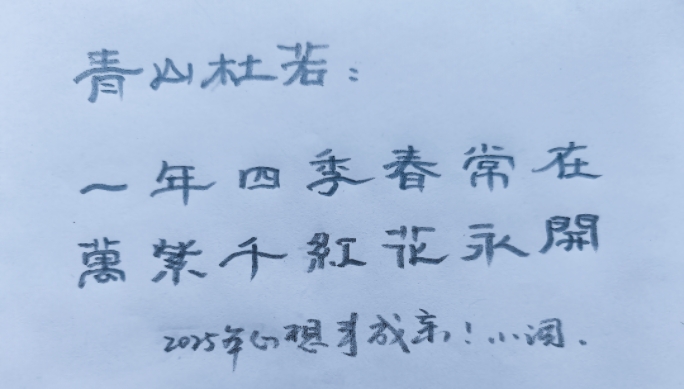 青山杜若：
一年四季春常在
萬紫千紅花永開
2025年心想事成亲！小润.